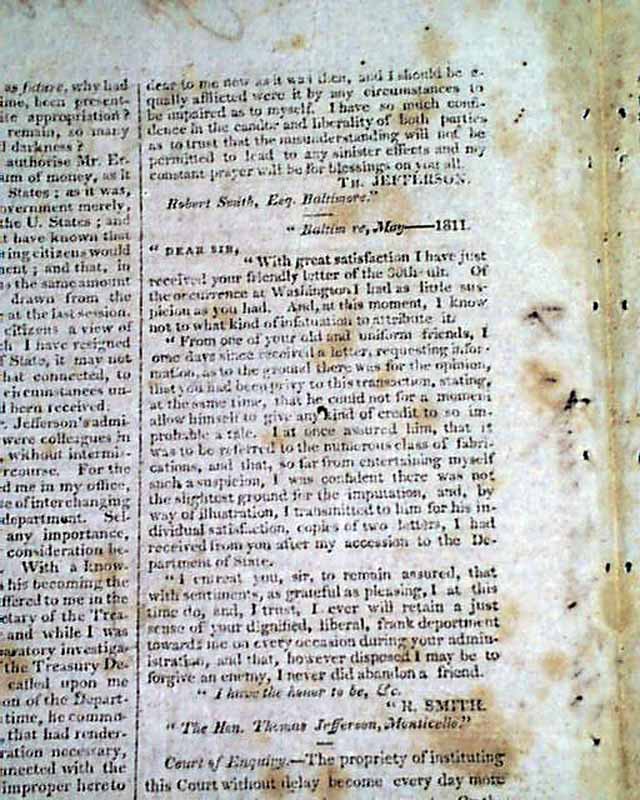 as future, why had
ime, been present-
ite appropriation?
remain, so many
d darkness?
authorise Mr. Er-
um of money, as it
States; as it was,
overnment merely,
the U. States; and
t have known that
ring citizens would
ment; and that, in
as the same amount
drawn from the
at the last session.
citizens a view of
ch I have resigned
f State, it may not
hat connected, to
circumstances un-
d been received.
r. Jefferson's admi-
were colleagues in
without intermis-
rcourse. For the
ed me in my office,
se of interchanging
department. Sel-
any importance,
consideration be-
With a know-
his becoming the
ffered to me in the
etary of the Trea-
and while I was
paratory investiga-
the Treasury De-
called upon me
on of the Depart-
time, he commu-
that had render-
ration necessary,
nnected with the
improper hereto
dear to me now as it was then, and I should be e-
qually afflicted were it by any circumstances to
be impaired as to myself. I have so much confi-
dence in the candor and liberality of both parties
as to trust that the misunderstanding will not be
permitted to lead to any sinister effects and my
constant prayer will be for blessings on you all.
TH. JEFFERSON.
Robert Smith, Esq. Baltimore."
"Baltim re, May——1811.
"DEAR SIR,
"With great satisfaction I have just
received your friendly letter of the 30th ult. Of
the occurrence at Washington I had as little sus-
picion as you had. And, at this moment, I know
not to what kind of infatuation to attribute it.
"From one of your old and uniform friends, I
some days since received a letter, requesting infor-
mation, as to the ground there was for the opinion,
that you had been privy to this transaction, stating,
at the same time, that he could not for a moment
allow himself to give any kind of credit to so im-
probable a tale. I at once assured him, that it
was to be referred to the numerous class of fabri-
cations, and that, so far from entertaining myself
such a suspicion, I was confident there was not
the slightest ground for the imputation, and, by
way of illustration, I transmitted to him for his in-
dividual satisfaction, copies of two letters, I had
received from you after my accession to the De-
partment of State.
"I entreat you, sir, to remain assured, that
with sentiments, as grateful as pleasing, I at this
time do, and, I trust, I ever will retain a just
sense of your dignified, liberal, frank deportment
towards me on every occasion during your admin-
istration, and that, however disposed I may be to
forgive an enemy, I never did abandon a friend.
"I have the honor to be, &c.
"R. SMITH.
"The Hon. Thomas Jefferson, Monticello."
Court of Enquiry.—The propriety of instituting
this Court without delay become every day more